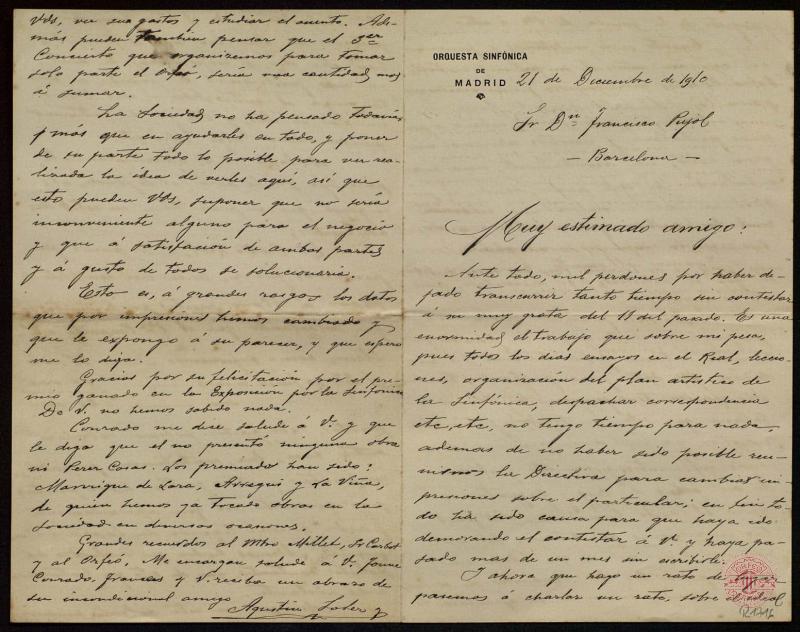 ORQUESTA SINFÓNICA
DE
MADRID
21 de Diciembre de 1910
Sr Dn Francisco Pujol
- Barcelona -
Muy estimado amigo:
Ante todo, mil perdones por haber de-
jado transcurrir tanto tiempo sin contestar
á su muy grata del 11 del pasado. Es una
enormidad el trabajo que sobre mi pesa,
pues todos los dias ensayos en el Real, leccio-
nes, organización del plan artístico de
la Sinfónica, despachar correspondencia
etc, etc, no tengo tiempo para nada,
ademas de no haber sido posible reu-
nirnos la Directiva para cambiar im-
presiones sobre el particular; en fin to-
do ha sido causa para que haya ido
demorando el contestar á V. y haya pa-
sado mas de un mes sin escribirle.
Y ahora que hago un rato de
pasemos á charlar un rato, sobre el ideal
R.1716
Vds, ver sus gastos y estudiar el asunto. Ade-
más pueden también pensar que el 3er
Concierto que organizemos para tomar
solo parte el Orfeo, seria una cantidad mas
á sumar.
La Sociedad no ha pensado todavia
mas que en ayudarles en todo, y poner
de su parte todo lo posible para ver rea-
lizada la idea de verles aquí, asi que
esto pueden Vds, suponer que no seria
inconveniente alguno para el negocio
y que á satisfacción de ambas partes
y á gusto de todos se solucionaria.
Esto es, á grandes rasgos los datos
que por impresiones hemos cambiado y
que le expongo á su parecer, y que espero
me lo diga.
Gracias por su felicitación por el pre-
mio ganado en la Exposición por la Sinfónica
De V. no hemos sabido nada.
Conrado me dice salude á V. y que
le diga que el no presentó ninguna obra
ni Perez Casas. Los premiados han sido:
Manrique de Lara, Arregui y La Viña,
de quien hemos ya tocado obras en la
Sociedad en diversas ocasiones.
Grandes recuerdos al Mtro Millet, Sr Carbot
y al Orfeó, Me encargan salude á V.
Conrado, Francés y V. reciba un abrazo de
su incondicional amigo
Agustin Soler y